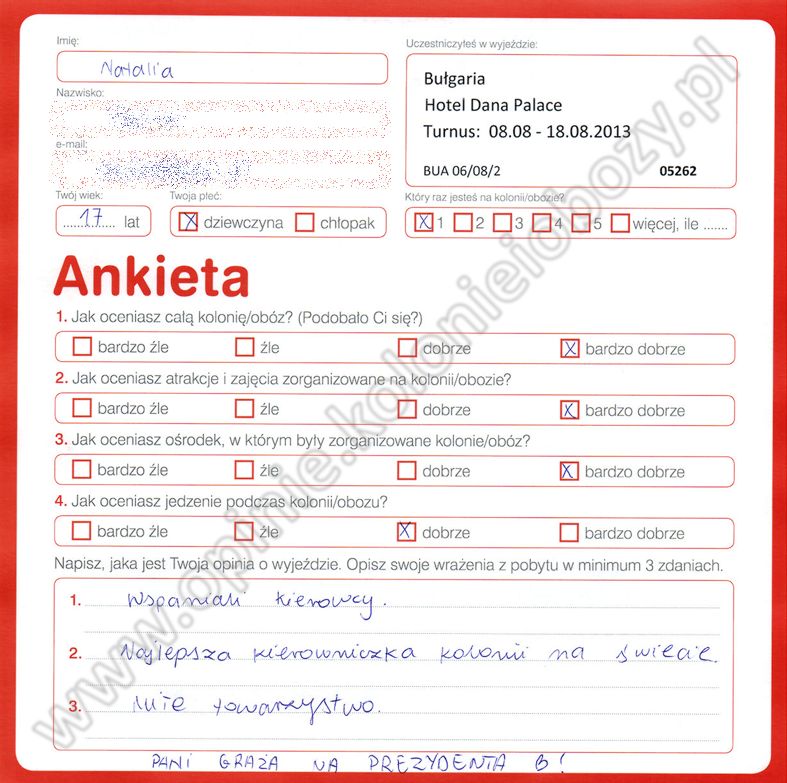 Imię:
Natalia
Nazwisko:
e-mail:
Twój wiek:
17 lat
Twoja płeć:
X dziewczyna chłopak
Uczestniczyłeś w wyjeździe:
Bułgaria
Hotel Dana Palace
Turnus: 08.08 - 18.08.2013
BUA 06/08/2 05262
Który raz jesteś na kolonii/obozie?
X 1 2 3 4 5 więcej, ile .......
Ankieta
1. Jak oceniasz całą kolonię/obóz? (Podobało Ci się?)
bardzo źle źle dobrze X bardzo dobrze
2. Jak oceniasz atrakcje i zajęcia zorganizowane na kolonii/obozie?
bardzo źle źle dobrze X bardzo dobrze
3. Jak oceniasz ośrodek, w którym były zorganizowane kolonie/obóz?
bardzo źle źle dobrze X bardzo dobrze
4. Jak oceniasz jedzenie podczas kolonii/obozu?
bardzo źle źle X dobrze bardzo dobrze
Napisz, jaka jest Twoja opinia o wyjeździe. Opisz swoje wrażenia z pobytu w minimum 3 zdaniach.
1. Wspaniali kierowcy.
2. Najlepsza kierowniczka kolonii na świecie.
3. Miłe towarzystwo.
PANI GRAŻA NA PREZYDENTA !
www.opinie.kolonieiobozy.pl